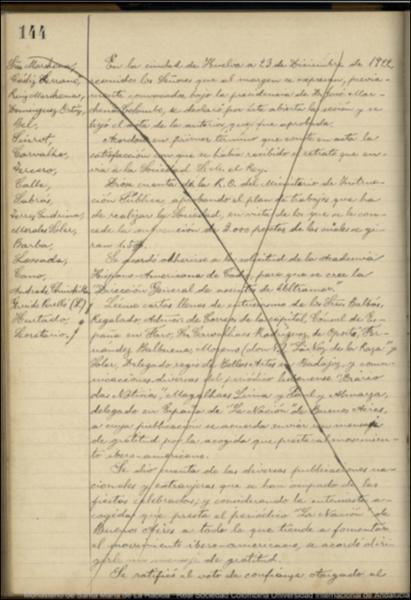 144
Sres Marchena,
Cádiz Serrano,
Ruiz Marchena,
Dominguez Ortiz,
Gel,
Siurot,
Carvalho,
Terrero,
Calle,
Labrós,
Torres Endrina,
Morales Soler,
Barba,
Lossada,
Cano,
Andrade Chinchilla
Garrido Perelló (D.)
Hurtado,
Secretario,
En la ciudad de Huelva a 23 de Diciembre de 1912,
reunidos los Señores que al margen se expresan, previa-
mente convocada, bajo la presidencia de D. José Mar-
chena Colombo, se declaró por éste abierta la sesión y se
leyó el acta de la anterior, que fue aprobada.
Acordose en primer término que conste en acta la
satisfacción con que se había recibido el retrato que en-
vía a la Sociedad S. M. el Rey.
Diose cuenta de la R.O. del Ministerio de Instruc-
ción Pública, aprobando el plan de trabajos que ha
de realizar la Sociedad, en vista de los que se le con-
cede la subvención de 2.000 pesetas de las cuales se gi-
ran
Se acordó adherirse a la solicitud de la Academia
Hispano-Americana de Cádiz para que se cree la
"Dirección General de asuntos de Ultramar."
Leíanse cartas llenas de entusiasmo de los Sres Balbás,
Regalado, Admor de Correos de la capital, Cónsul de Es-
paña en Faro, Sr. Carvalhaes Rodriguez, de Oporto, Fer-
nandez Balbuena, Moreno (don V.) "La Voz de la Raza" y
Soler, Delegado regio de Bellas Artes en Badajoz, y comu-
nicaciones diversas del periódico lisbonense "Diario
das Noticias", Magalhaes Lima y Lord y Almarza,
delegado en España de "La Nación" de Buenos Aires,
a cuya publicación se acuerda enviar un mensaje
de gratitud por la acogida que presta al movimien-
to ibero-americano.
Se dió cuenta de las diversas publicaciones na-
cionales y extranjeras que se han ocupado de las
fiestas celebradas, y considerando la entusiasta a-
cogida que presta el periódico "La Nación" de
Buenos Aires a todo lo que tiende a fomentar
el movimiento ibero-americano, se acordó diri-
girle un mensaje de gratitud.
Se ratificó el voto de confianza otorgado al